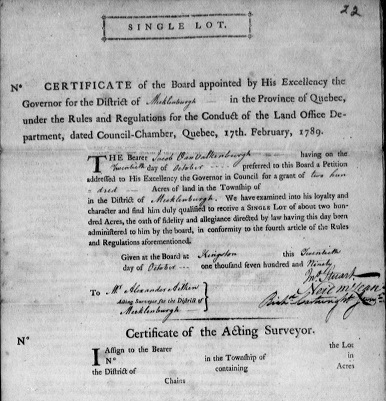 22
SINGLE LOT.
N° CERTIFICATE of the Board appointed by His Excellency the
Governor for the District of Mecklenburgh in the Province of Quebec,
under the Rules and Regulations for the Conduct of the Land Office De-
partment, dated Council-Chamber, Quebec, 17th. February, 1789.
THE Bearer Jacob Van Valkenburgh having on the
Twentieth day of October preferred to this Board a Petition
addressed to His Excellency the Governor in Council for a grant of two hun
dred Acres of land in the Township of
in the District of Mecklenburgh. We have examined into his loyalty and
character and find him duly qualified to receive a SINGLE LOT of about two hun-
dred Acres, the oath of fidelity and allegiance directed by law having this day been
administered to him by the board, in conformity to the fourth article of the Rules
and Regulations aforementioned.
Given at the Board at Kingston this Twentieth
day of October one thousand seven hundred and Ninety.
Jno. Stuart
To Mr. Alexander Aitkin
Neil McLean
Acting Surveyor for the District of
Richd. Cartwright Junr.
Mecklenburgh
Certificate of the Acting Surveyor.
N°
I Assign to the Bearer the Lot
N° in the Township of in
the District of containing Acres
Chains